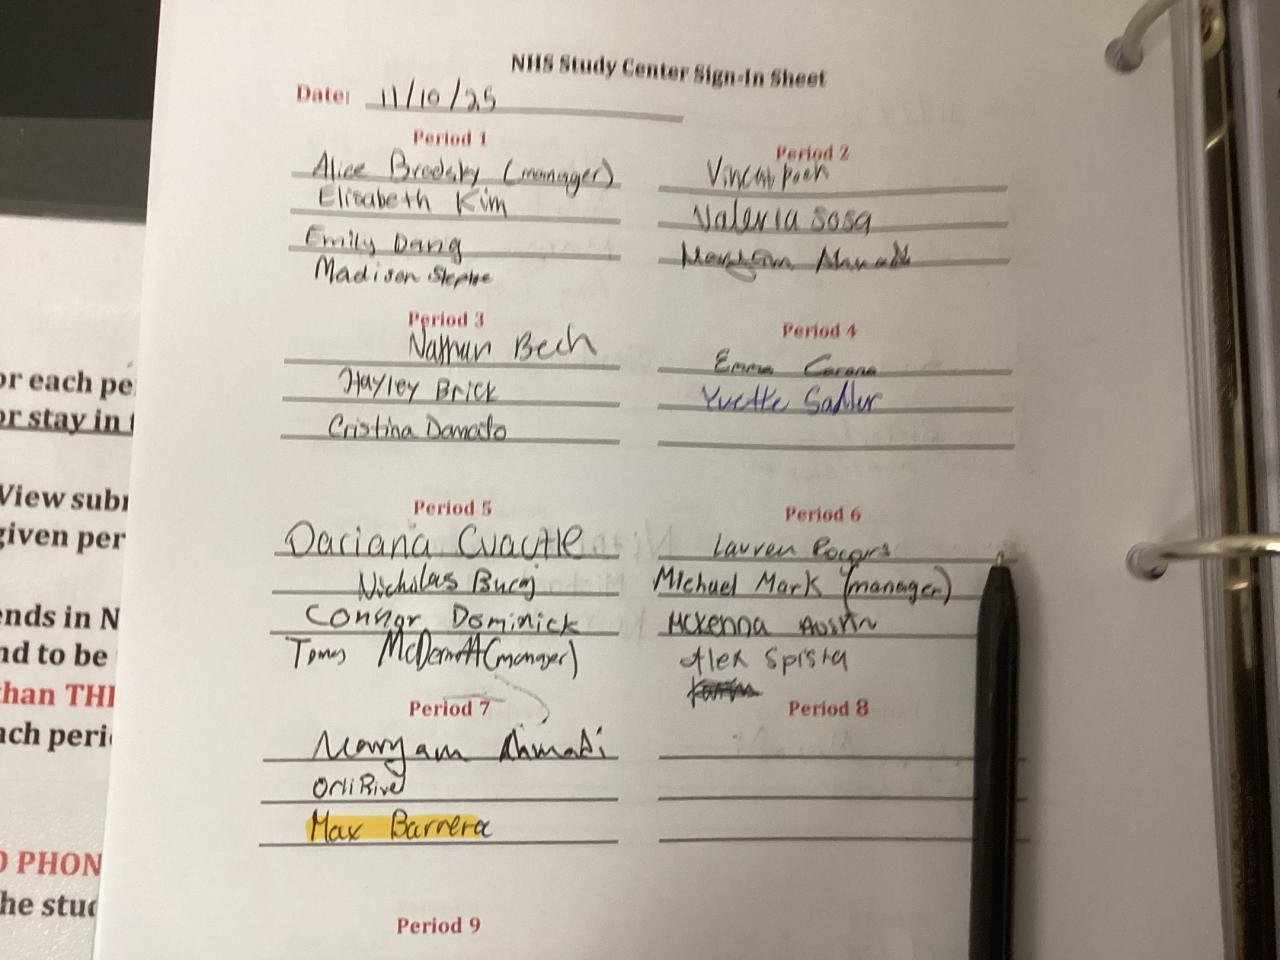 NHS Study Center Sign-In Sheet
Date: 11/10/25
Period 1
Alice Brodsky (manager)
Elisabeth Kim
Emily Dang
Madison
Period 2
Valeria Sosa
Maryam Ahmadi
Period 3
Nathan Bech
Hayley Brick
Cristina Damato
Period 4
Emma
Yvette Sadlur
Period 5
Dariana Cuactle
Nicholas
Connor Dominick
McDermott (manager)
Period 6
Lauren
Michael Mark (manager)
McKenna Austin
Alex Spista
Period 7
Maryam Ahmadi
Orli
Max Barrera
Period 8
Period 9
or each pe
or stay in t
View subr
given per
ends in N
nd to be
than THI
ach peri
O PHON
he stud